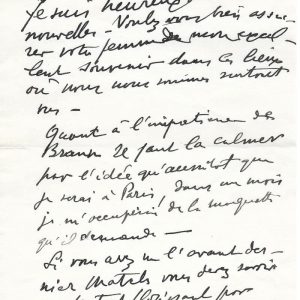 Je suis heureux
nouvelles - Voulez vous bien assu-
rer votre femme de mon excel-
lent souvenir dans ces lieux
où nous nous sommes surtout
vus -
Quant à l'impatience des
Braun il faut la calmer
par l'idée qu'aussitôt que
je serai à Paris, dans un mois
je m'occuperai de la maquette
qu'il demande -
Si vous avez eu l'avant der-
nier Match vous devez savoir
par